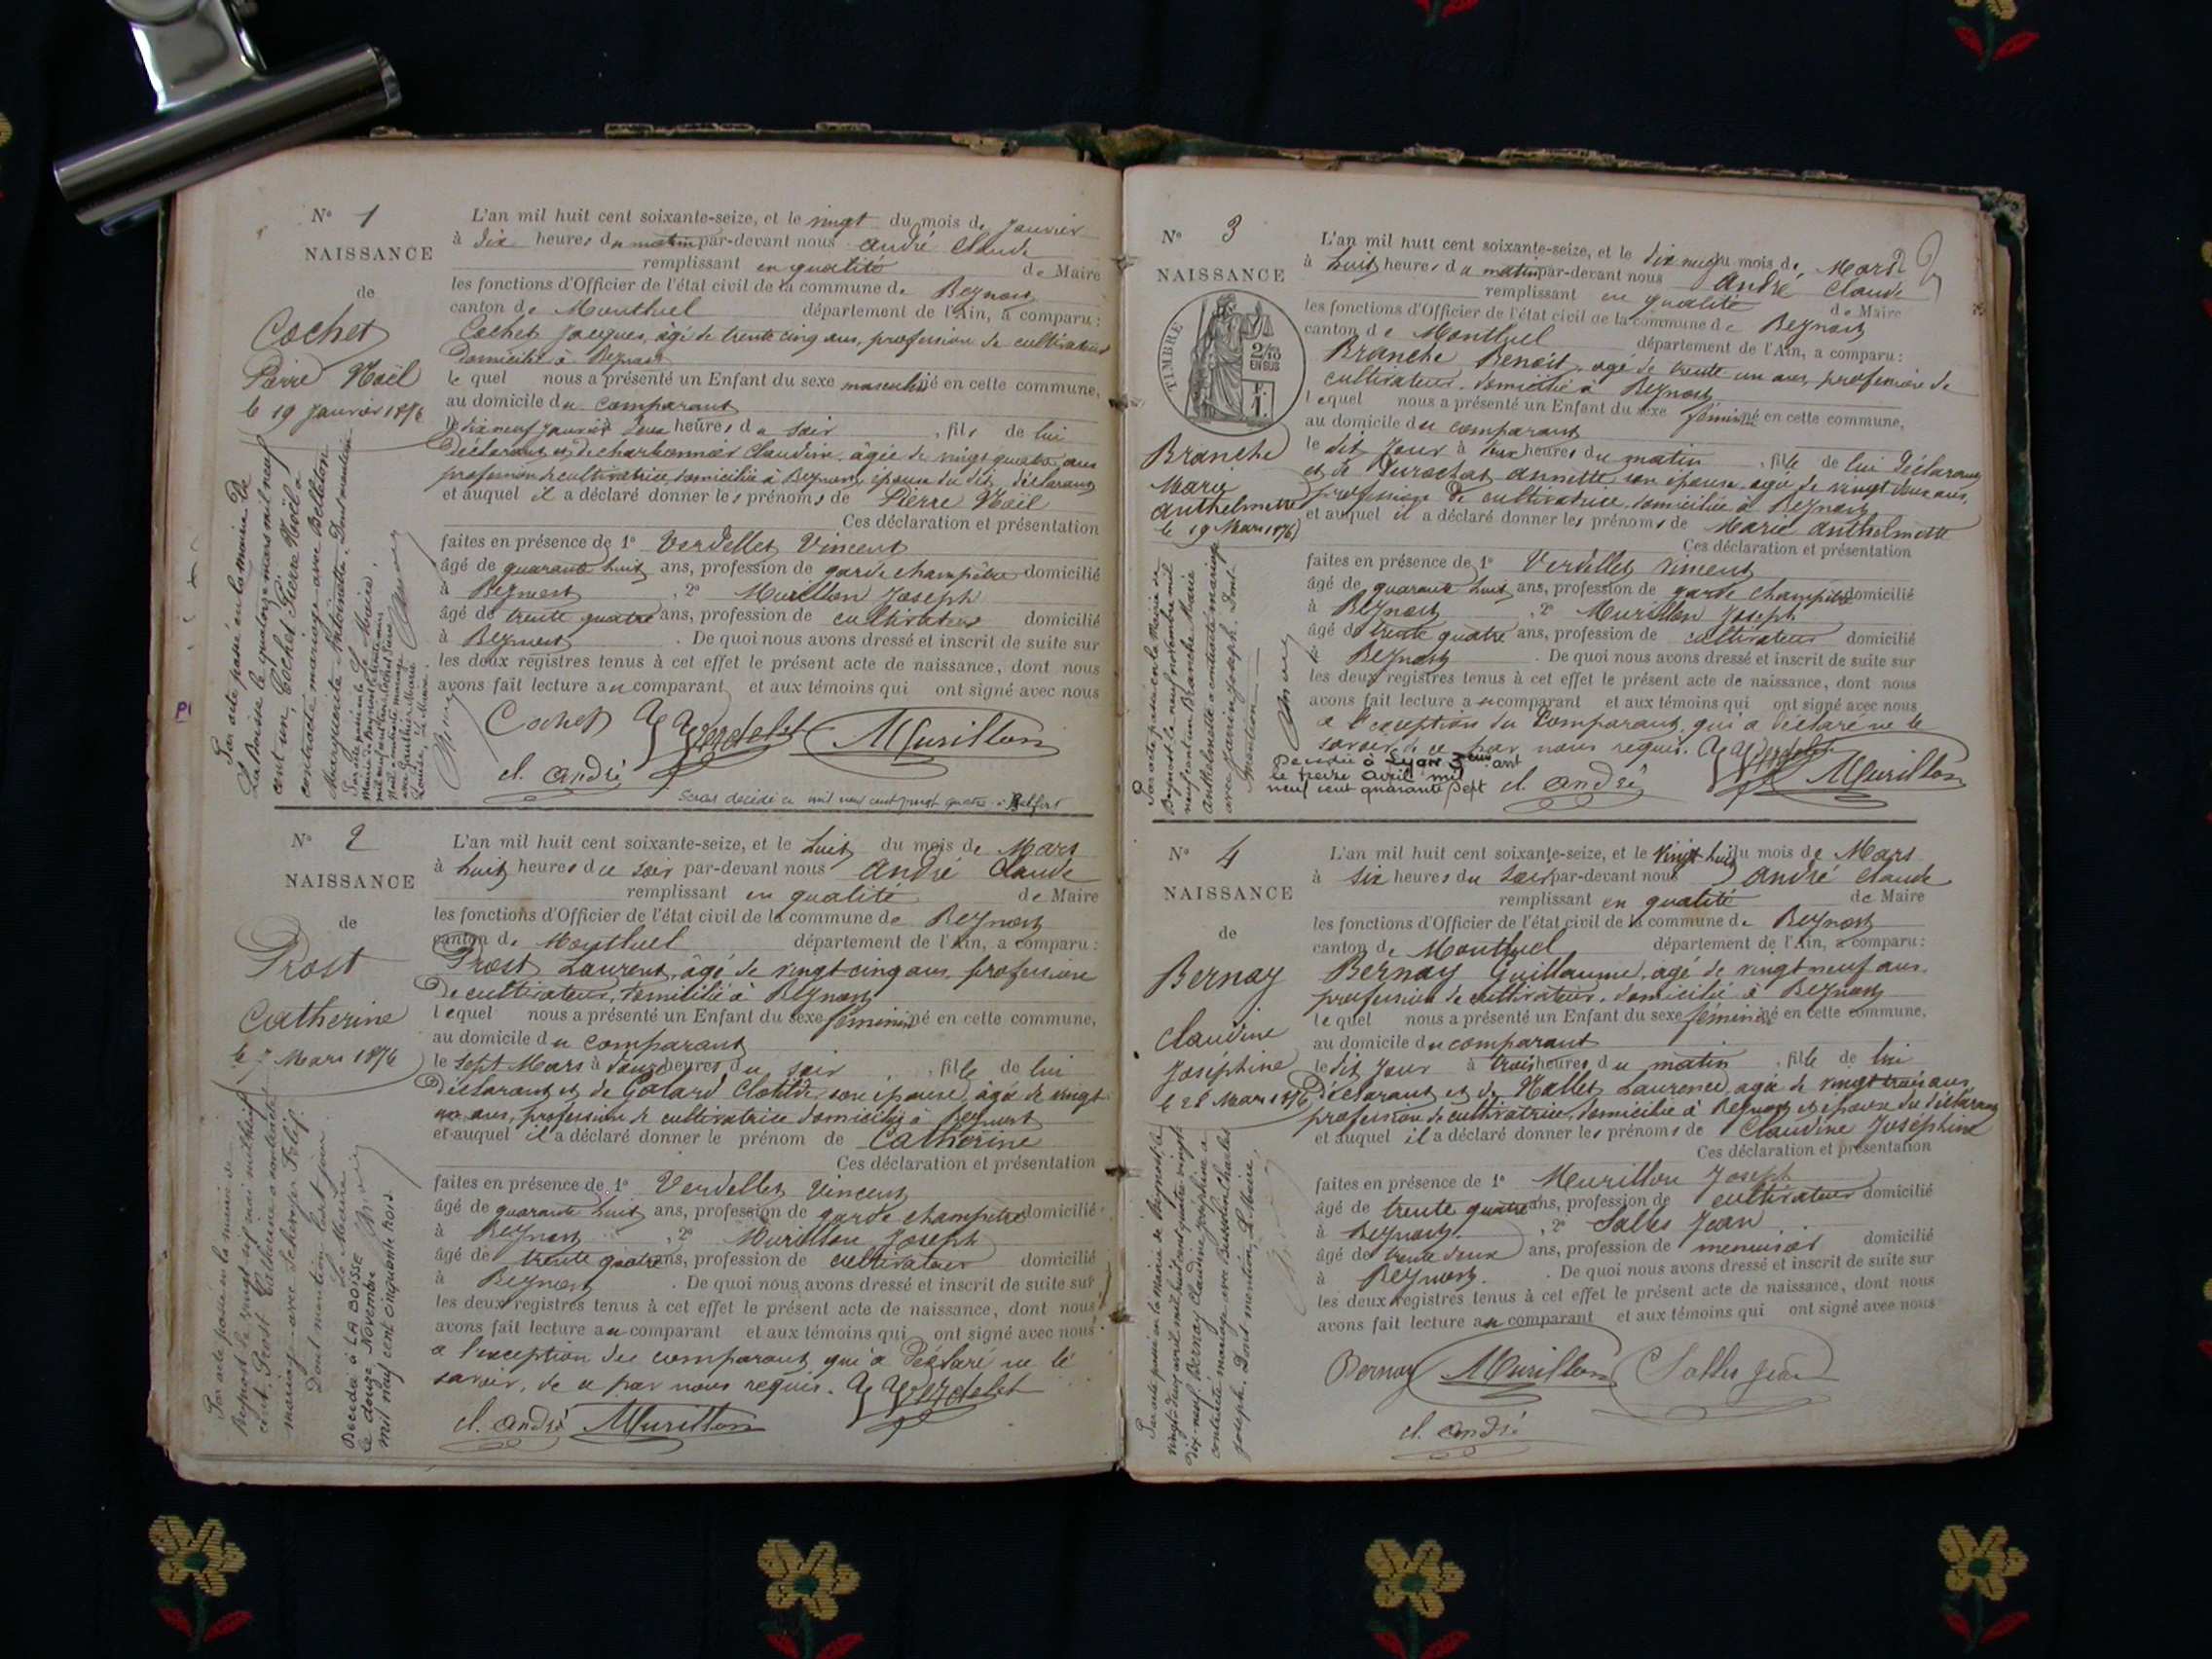 N° 1
NAISSANCE
de
Cochet
Pierre Noël
le 19 Janvier 1876
L'an mil huit cent soixante-seize, et le vingt du mois de Janvier
à dix heures du matin par-devant nous André Claude
remplissant en qualité de Maire
les fonctions d'Officier de l'état civil de la commune de Beynost
canton de Montluel département de l'Ain, a comparu :
Cochet Jacques, âgé de trente cinq ans, profession de cultivateur
domicilié à Beynost
le quel nous a présenté un Enfant du sexe masculin né en cette commune,
au domicile du comparant
le dix neuf Janvier à deux heures du soir , fils de lui
déclarant et de Charbonnier Claudine, âgée de vingt quatre ans
profession de cultivatrice, domiciliée à Beynost, épouse du dit déclarant
et auquel il a déclaré donner les prénoms de Pierre Noël
Ces déclaration et présentation
faites en présence de 1° Verdellet Vincent
âgé de quarante huit ans, profession de garde champêtre domicilié
à Beynost , 2° Murillon Joseph
âgé de trente quatre ans, profession de cultivateur domicilié
à Beynost . De quoi nous avons dressé et inscrit de suite sur
les deux registres tenus à cet effet le présent acte de naissance, dont nous
avons fait lecture au comparant et aux témoins qui ont signé avec nous
Cochet Verdelet Murillon
cl. André
Par acte passé en la mairie de
La Boisse le quatorze mars mil neuf
cent un, Cochet Pierre Noël a
contracté mariage avec Belleton
Marguerite Antoinette. Dont mention
Le Maire,
décédé en mil neuf cent vingt quatre à Belfort
N° 2
NAISSANCE
de
Prost
Catherine
le 7 Mars 1876
L'an mil huit cent soixante-seize, et le huit du mois de Mars
à huit heures du soir par-devant nous André Claude
remplissant en qualité de Maire
les fonctions d'Officier de l'état civil de la commune de Beynost
canton de Montluel département de l'Ain, a comparu :
Prost Laurent, âgé de vingt cinq ans, profession
de cultivateur, domicilié à Beynost
lequel nous a présenté un Enfant du sexe féminin né en cette commune,
au domicile du comparant
le sept Mars à deux heures du soir , fille de lui
déclarant et de Golard Clotilde, son épouse, âgée de vingt
ans, profession de cultivatrice domiciliée à Beynost
et auquel il a déclaré donner le prénom de Catherine
Ces déclaration et présentation
faites en présence de 1° Verdellet Vincent
âgé de quarante huit ans, profession de garde champêtre domicilié
à Beynost , 2° Murillon Joseph
âgé de trente quatre ans, profession de cultivateur domicilié
à Beynost . De quoi nous avons dressé et inscrit de suite sur
les deux registres tenus à cet effet le présent acte de naissance, dont nous
avons fait lecture au comparant et aux témoins qui ont signé avec nous
a l'exception du comparant qui a déclaré ne le
savoir, de ce par nous requis. Verdelet
cl. André Murillon
Par acte passé en la mairie de
Beynost le vingt six mai mil neuf
cent, Prost Catherine a contracté
mariage avec
Dont mention ledit jour
Le Maire
Décédée à LA BOISSE
le douze Novembre
mil neuf cent cinquante trois
N° 3
NAISSANCE
TIMBRE
2/10
EN SUS
Branche
Marie
Anthelmette
le 19 Mars 1876
L'an mil huit cent soixante-seize, et le dix neuf du mois de Mars
à huit heures du matin par-devant nous André Claude
remplissant en qualité de Maire
les fonctions d'Officier de l'état civil de la commune de Beynost
canton de Montluel département de l'Ain, a comparu :
Branche Benoit, âgé de trente un ans, profession de
cultivateur, domicilié à Beynost
lequel nous a présenté un Enfant du sexe féminin né en cette commune,
au domicile du comparant
le dit jour à deux heures du matin , fille de lui déclarant
et de Durochat Annette, son épouse, âgée de vingt deux ans,
profession de cultivatrice, domiciliée à Beynost
et auquel il a déclaré donner les prénoms de Marie Anthelmette
Ces déclaration et présentation
faites en présence de 1° Verdellet Vincent
âgé de quarante huit ans, profession de garde champêtre domicilié
à Beynost , 2° Murillon Joseph
âgé de trente quatre ans, profession de cultivateur domicilié
à Beynost . De quoi nous avons dressé et inscrit de suite sur
les deux registres tenus à cet effet le présent acte de naissance, dont nous
avons fait lecture au comparant et aux témoins qui ont signé avec nous
a l'exception du comparant qui a déclaré ne le
savoir, de ce par nous requis. Verdelet
cl. André Murillon
Par acte passé en la Mairie de
Beynost le neuf novembre mil
neuf cent un Branche Marie
Anthelmette a contracté mariage
avec Janin Joseph. Dont
mention
Décédée à Lyon 3ème ant
le treize Avril mil
neuf cent quarante sept
N° 4
NAISSANCE
de
Bernay
Claudine
Joséphine
le 28 Mars 1876
L'an mil huit cent soixante-seize, et le vingt huit du mois de Mars
à six heures du soir par-devant nous André Claude
remplissant en qualité de Maire
les fonctions d'Officier de l'état civil de la commune de Beynost
canton de Montluel département de l'Ain, a comparu :
Bernay Guillaume, âgé de vingt neuf ans,
profession de cultivateur, domicilié à Beynost
lequel nous a présenté un Enfant du sexe féminin né en cette commune,
au domicile du comparant
le dit jour à trois heures du matin , fille de lui
déclarant et de Mallet Laurence, âgée de vingt trois ans,
profession de cultivatrice, domiciliée à Beynost et épouse du déclarant
et auquel il a déclaré donner les prénoms de Claudine Joséphine
Ces déclaration et présentation
faites en présence de 1° Murillon Joseph
âgé de trente quatre ans, profession de cultivateur domicilié
à Beynost , 2° Salles Jean
âgé de trente deux ans, profession de menuisier domicilié
à Beynost . De quoi nous avons dressé et inscrit de suite sur
les deux registres tenus à cet effet le présent acte de naissance, dont nous
avons fait lecture au comparant et aux témoins qui ont signé avec nous
Bernay Murillon Salles Jean
cl. André
Par acte passé en la mairie de Beynost le
vingt-deux avril mil huit cent quatre-vingt
dix-neuf, Bernay Claudine Joséphine a
contracté mariage avec Charles
Joseph. Dont mention, Le Maire,